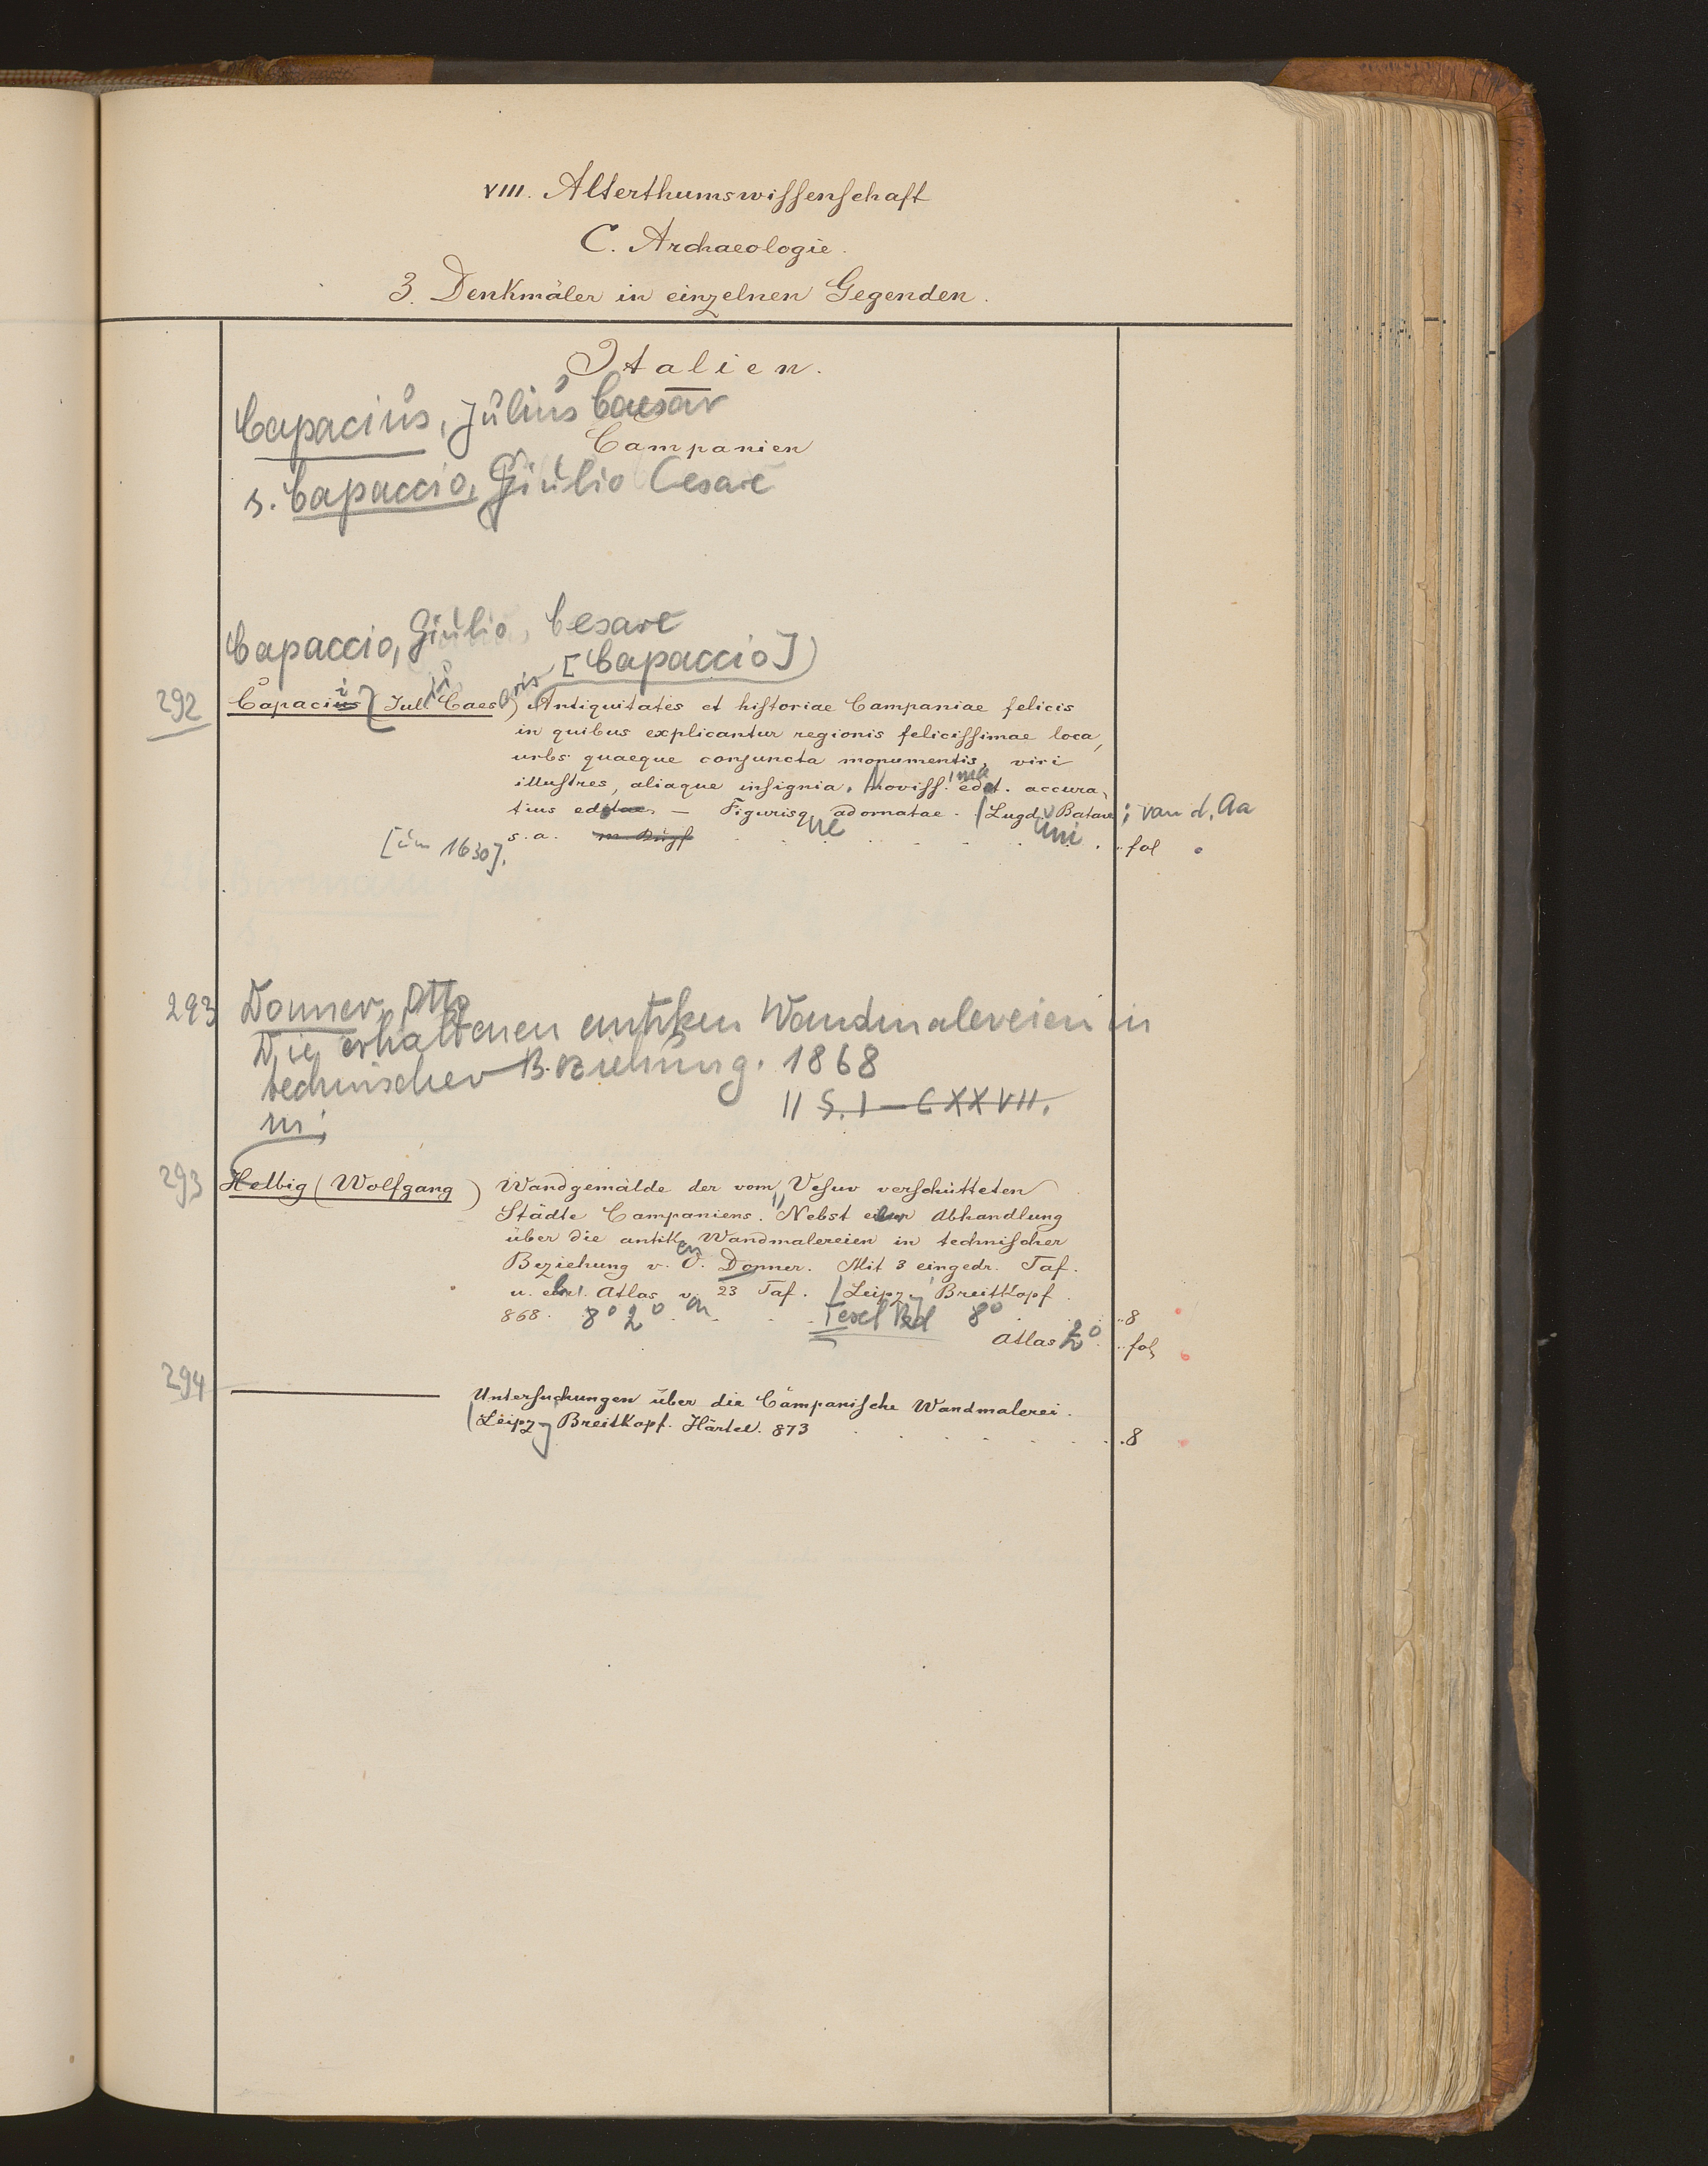 VIII. Alterthumswissenschaft
C. Archaeologie.
3. Denkmäler in einzelnen Gegenden.
Italien.
Capacius, Julius Caesar
Campanien
s. Capaccio, Giulio Cesare
Capaccio, Giulio Cesare
[Capaccio])
292 Capacius (Jul. Caes.) Antiquitates et historiae Campaniae felicis
in quibus explicantur regionis felicissimae loca,
urbs quaeque conjuncta monumentis, viri
illustres, aliaque insignia. Noviss. edit. accura-
tius editae. — Figurisque adornatae. Lugd. Batav ; van d. Aa
[um 1630]. s. a. fol
293 Donner, Otto
Die erhaltenen antiken Wandmalereien in
technischer Beziehung. 1868
II S. I — CXXVII.
in:
293 Helbig (Wolfgang) Wandgemälde der vom Vesuv verschütteten
Städte Campaniens. Nebst einer Abhandlung
über die antiken Wandmalereien in technischer
Beziehung v. O. Donner. Mit 3 eingedr. Taf.
u. 1 Atlas v. 23 Taf. Leipz. Breitkopf.
868. 8° 2° Text Bd 8° ..8
Atlas 2° .. fol
294 ——— Untersuchungen über die Campanische Wandmalerei.
Leipz. Breitkopf. Härtel. 873 .8